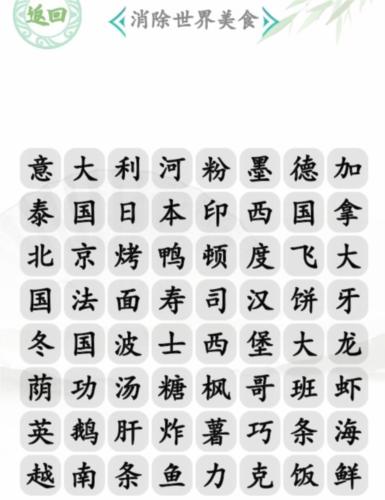 返回
消除世界美食
意大利河粉墨德加
泰国日本印西国拿
北京烤鸭顿度飞大
国法面寿司汉饼牙
冬国波士西堡大龙
荫功汤糖枫哥班虾
英鹅肝炸薯巧条海
越南条鱼力克饭鲜